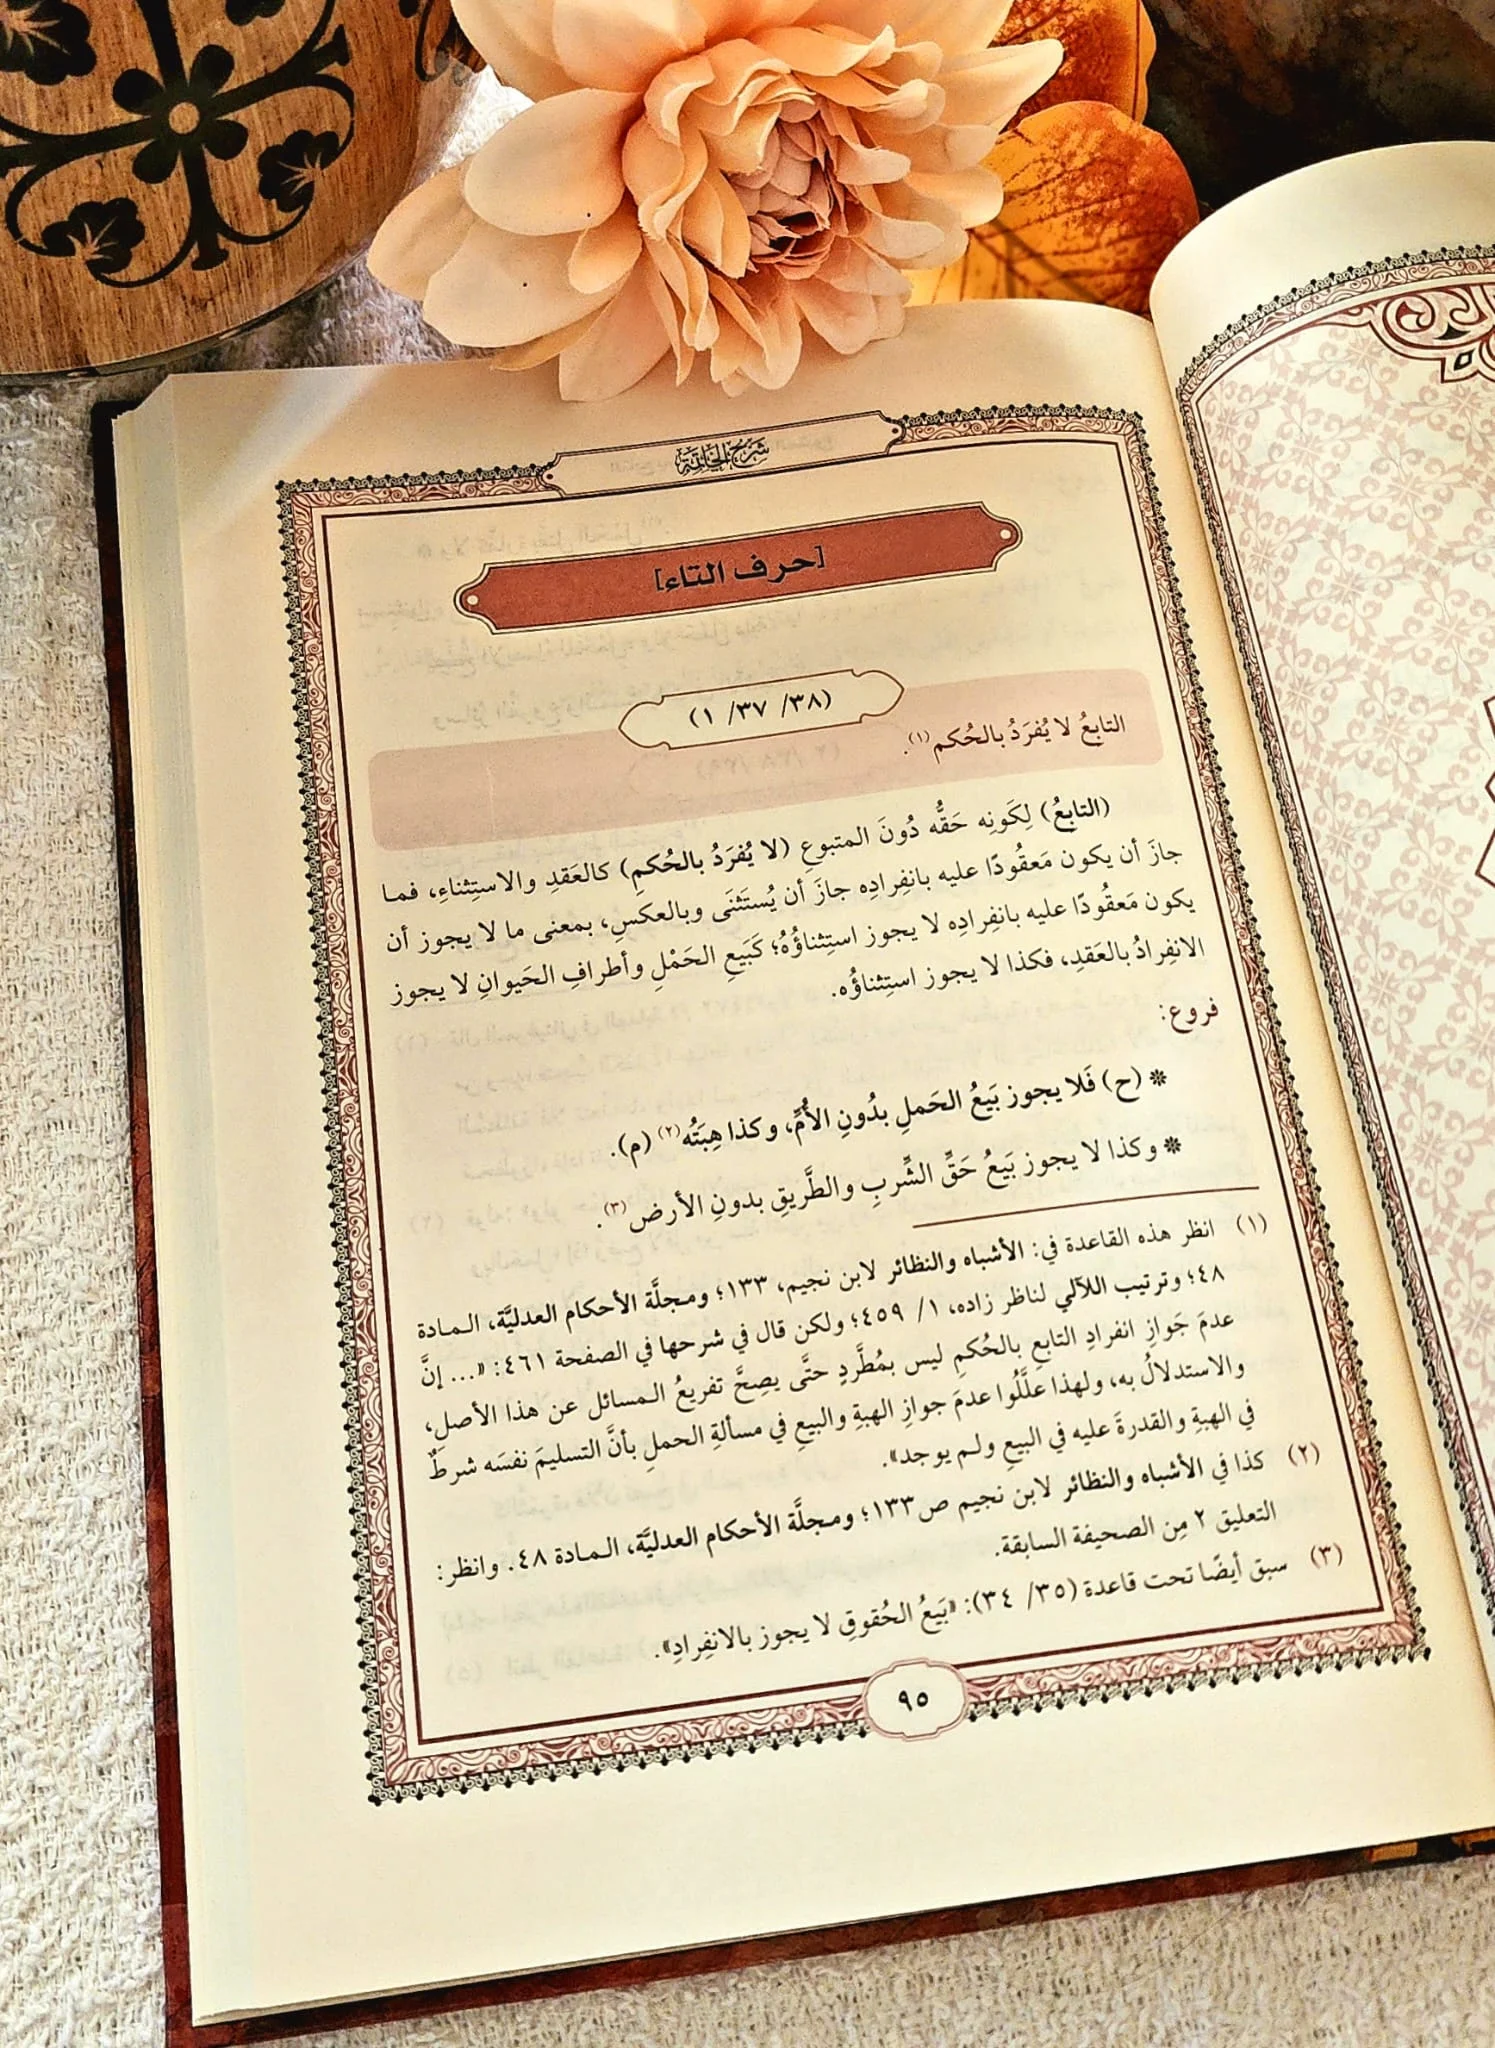 شرح الخاتمة
[حرف التاء]
(٣٨/ ٣٧/ ١)
التابعُ لا يُفرَدُ بالحُكم(١).
(التابعُ) لِكَونِه حَقُّه دُونَ المتبوعِ (لا يُفرَدُ بالحُكمِ) كالعَقدِ والاستِثناءِ، فمـا
جازَ أن يكون مَعقُودًا عليه بانفِرادِه جازَ أن يُستَثنَى وبالعكسِ، بمعنى ما لا يجوز أن
يكون مَعقُودًا عليه بانفِرادِه لا يجوز استِثناؤُهُ؛ كَبَيعِ الحَمْلِ وأطرافِ الحَيوانِ لا يجوز
الانفِرادُ بالعَقدِ، فكذا لا يجوز استِثناؤُه.
فروع:
* (ح) فَلا يجوز بَيعُ الحَملِ بدُونِ الأُمِّ، وكذا هِبَتُه(٢) (م).
* وكذا لا يجوز بَيعُ حَقِّ الشِّربِ والطَّريقِ بدونِ الأرض(٣).
(١) انظر هذه القاعدة في: الأشباه والنظائر لابن نجيم، ١٣٣؛ ومجلَّة الأحكام العدليَّة، الـمـادة
٤٨؛ وترتيب اللآلي لناظر زاده، ١/ ٤٥٩؛ ولكن قال في شرحها في الصفحة ٤٦١: «... إنَّ
عدمَ جَوازِ انفرادِ التابعِ بالحُكمِ ليس بمُطَّردٍ حتَّى يصِحَّ تفريعُ الـمسائل عن هذا الأصلِ،
والاستدلالُ به، ولهذا علَّلُوا عدمَ جوازِ الهبةِ والبيعِ في مسألةِ الحملِ بأنَّ التسليمَ نفسَه شرطٌ
في الهبةِ والقدرةَ عليه في البيعِ ولـم يوجد».
(٢) كذا في الأشباه والنظائر لابن نجيم ص١٣٣؛ ومجلَّة الأحكام العدليَّة، الـمـادة ٤٨. وانظر:
التعليق ٢ مِن الصحيفة السابقة.
(٣) سبق أيضًا تحت قاعدة (٣٥/ ٣٤): «بَيعُ الحُقوقِ لا يجوز بالانفِرادِ».
٩٥